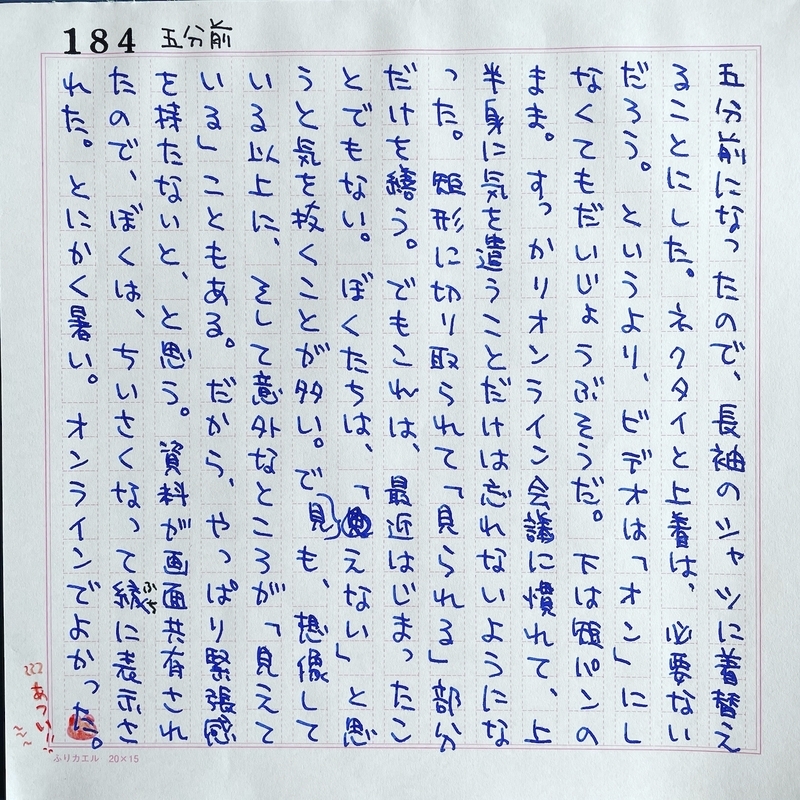 184 五分前
五分前になったので、長袖のシャツに着替え
ることにした。ネクタイと上着は、必要ない
だろう。というより、ビデオは「オン」にし
なくてもだいじょうぶそうだ。下は短パンの
まま。すっかりオンライン会議に慣れて、上
半身に気を遣うことだけは忘れないようにな
った。矩形に切り取られて「見られる」部分
だけを繕う。でもこれは、最近はじまったこ
とでもない。ぼくたちは、「見えない」と思
うと気を抜くことが多い。でも、想像して
いる以上に、そして意外なところが「見えて
いる」こともある。だから、やっぱり緊張感
を持たないと、と思う。資料が画面共有され
たので、ぼくは、ちいさくなって縁に表示さ
ふち
れた。とにかく暑い。オンラインでよかった。
あつい!!
ふりカエル 20×15